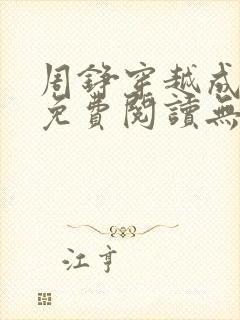 周錚穿越成
免費閱讀無
江亨